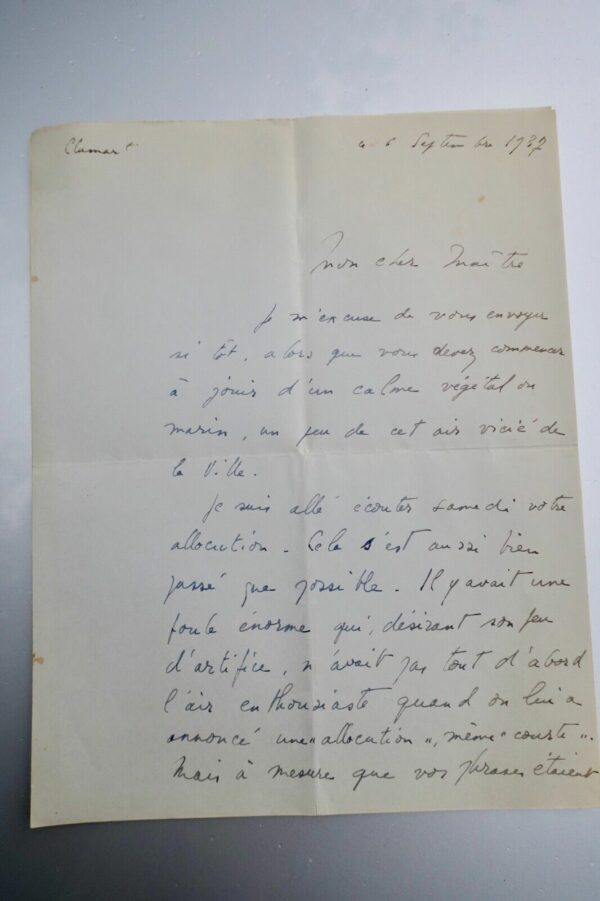 Clamart
6 Septembre 1937
Mon cher Maître
Je m'excuse de vous envoyer
si tôt, alors que vous devez commencer
à jouir d'un calme végétal ou
marin, un peu de cet air vicié de
la Ville.
Je suis allé écouter samedi votre
allocution - Cela s'est aussi bien
passé que possible - Il y avait une
foule énorme qui, désirant son feu
d'artifice, n'avait pas tout d'abord
l'air enthousiaste quand on lui a
annoncé une "allocution", même "courte".
Mais à mesure que vos phrases étaient